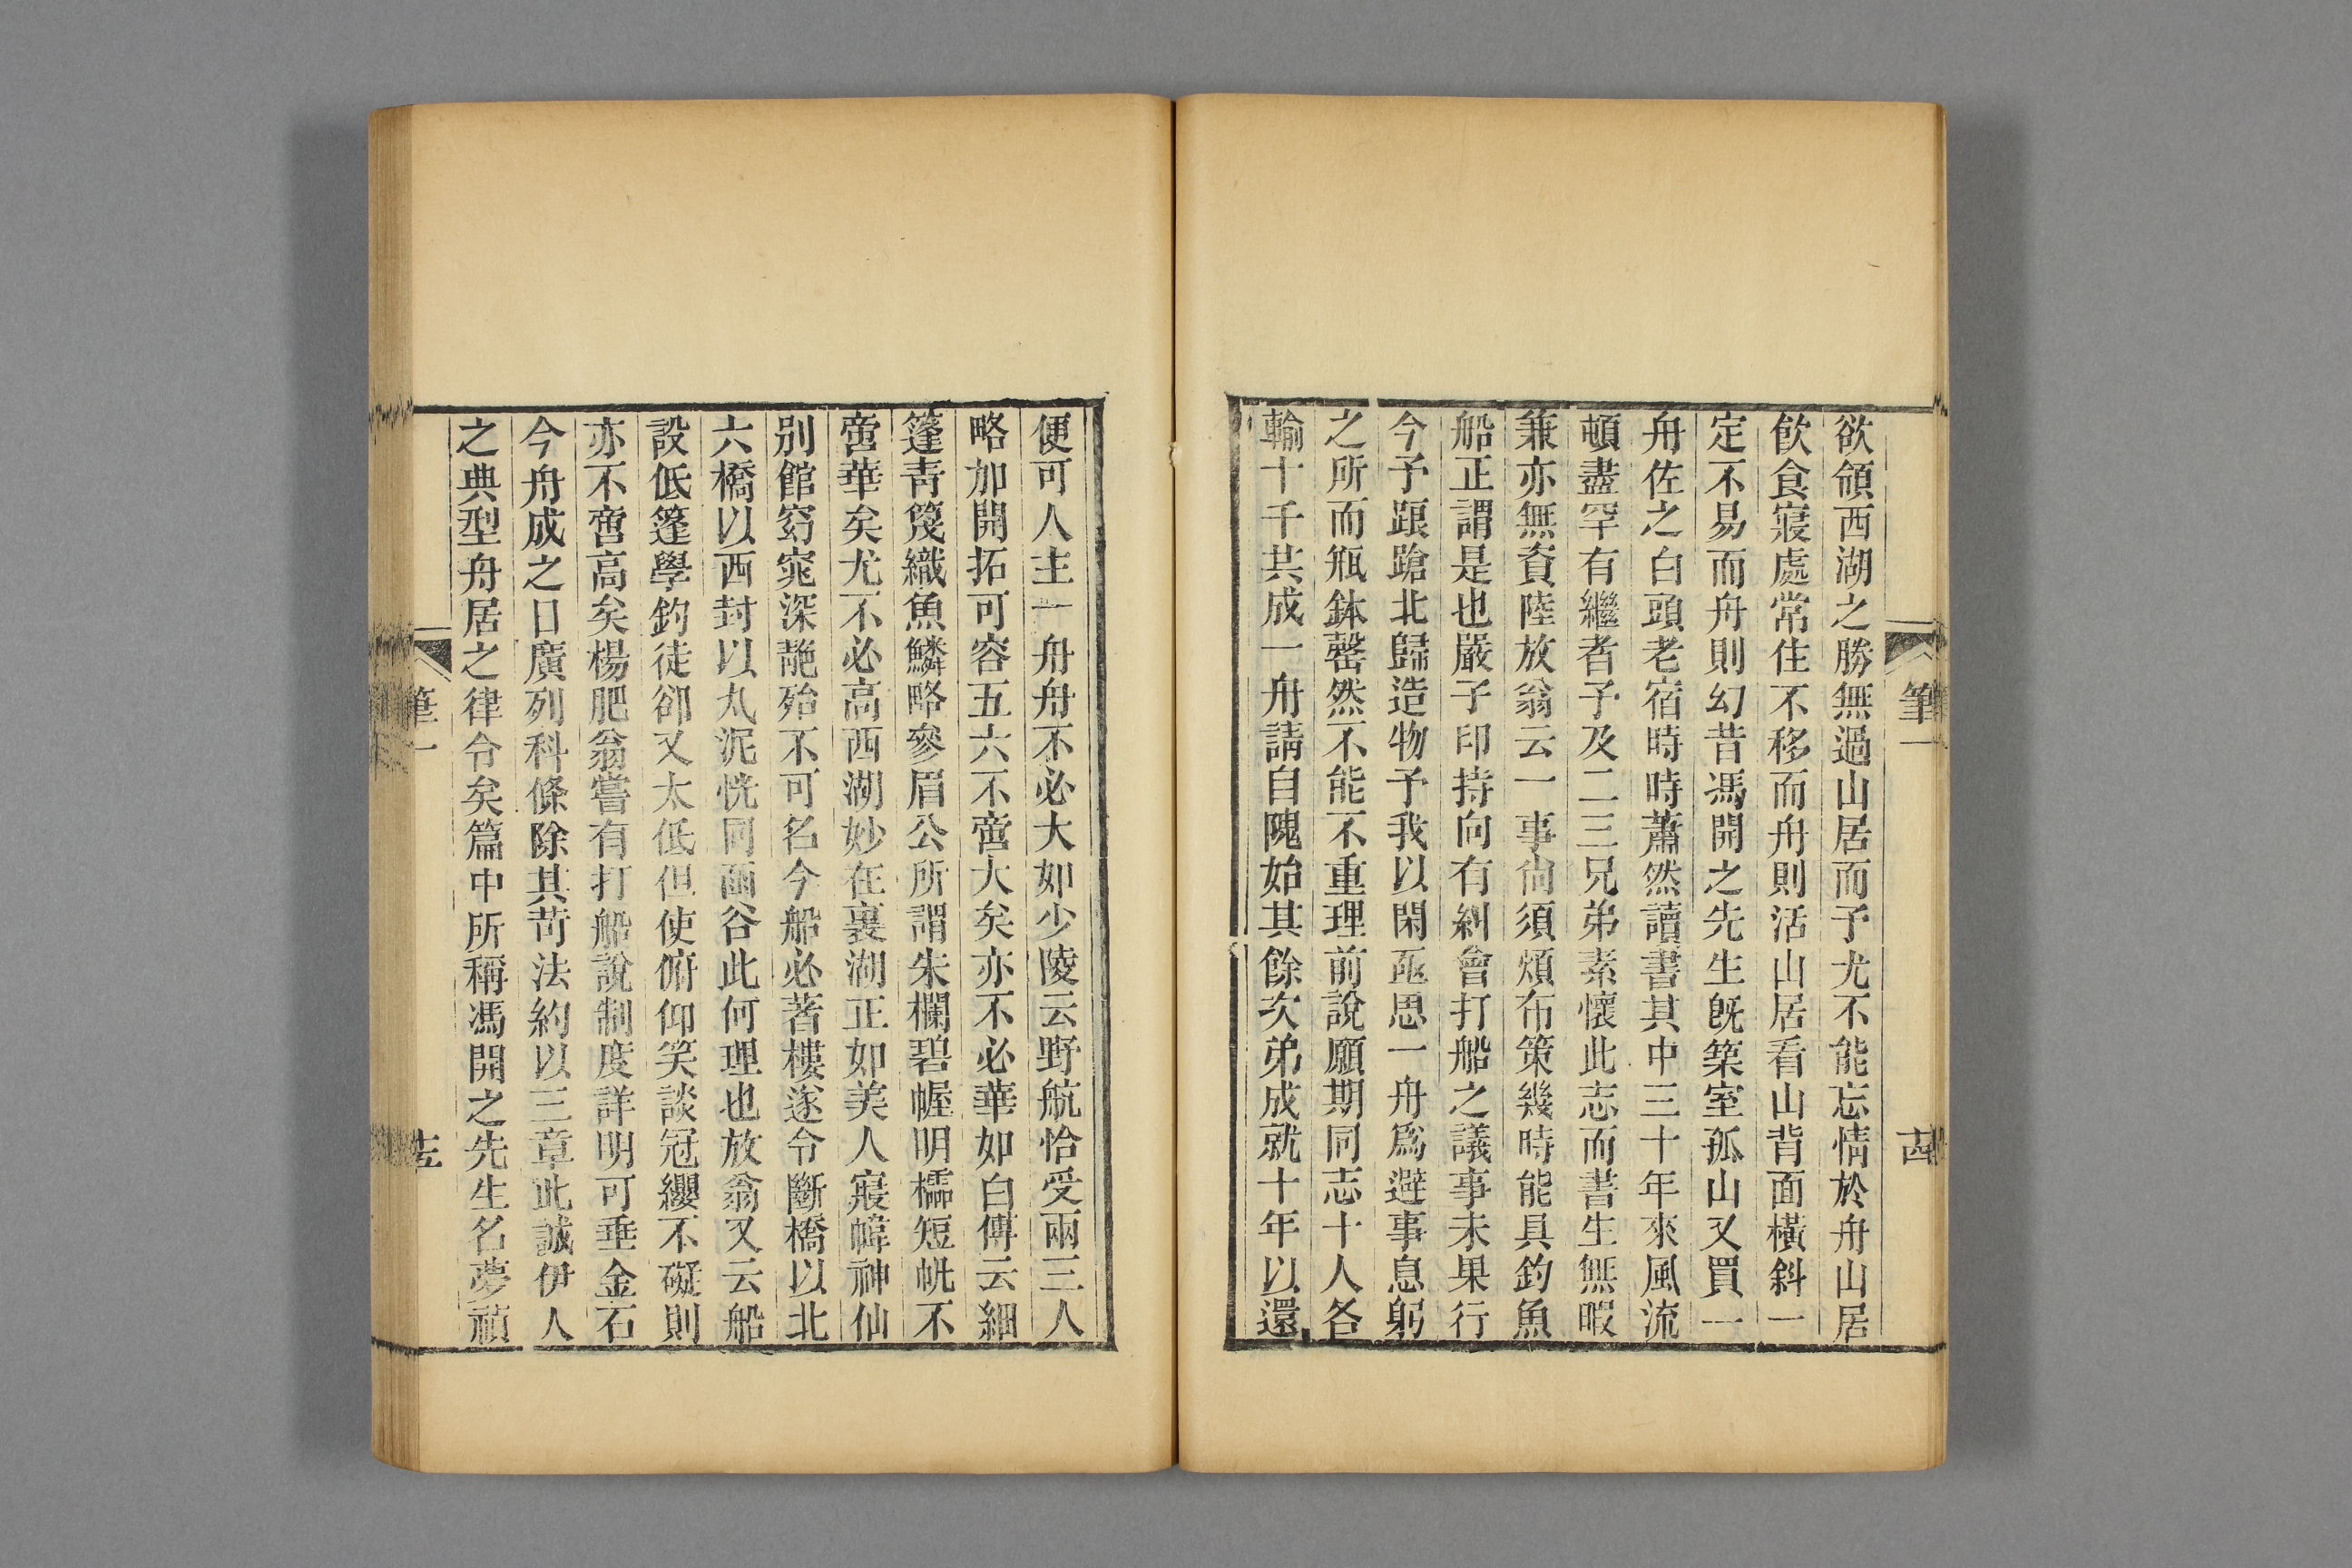 欲領西湖之勝無過山居而予尤不能忘情於舟山居
飮食寢處常住不移而舟則活山居看山背面橫斜一
定不易而舟則幻昔馮開之先生旣築室孤山又買一
舟佐之白頭老宿時時蕭然讀書其中三十年來風流
頓盡罕有繼者予及二三兄弟素懷此志而書生無暇
兼亦無資陸放翁云一事尙須煩布策幾時能具釣魚
船正謂是也嚴子印持向有糾會打船之議事未果行
今予踉蹌北歸造物予我以閑亟思一舟爲避事息躬
之所而瓶鉢罄然不能不重理前說願期同志十人各
輸十千共成一舟請自隗始其餘次弟成就十年以還
筆一
十四
便可人主一舟舟不必大如少陵云野航恰受兩三人
略加開拓可容五六不啻大矣亦不必華如白傅云細
篷靑篾織魚鱗略參眉公所謂朱欄碧幄明櫺短帆不
啻華矣尤不必高西湖妙在裏湖正如美人寢幃神仙
別館窈窕深靘殆不可名今船必著樓遂令斷橋以北
六橋以西封以丸泥恍同函谷此何理也放翁又云船
設低篷學釣徒卻又太低但使俯仰笑談冠纓不礙則
亦不啻高矣楊肥翁嘗有打船說制度詳明可垂金石
今舟成之日廣列科條除其苛法約以三章此誠伊人
之典型舟居之律令矣篇中所稱馮開之先生名夢禎
筆一
十五